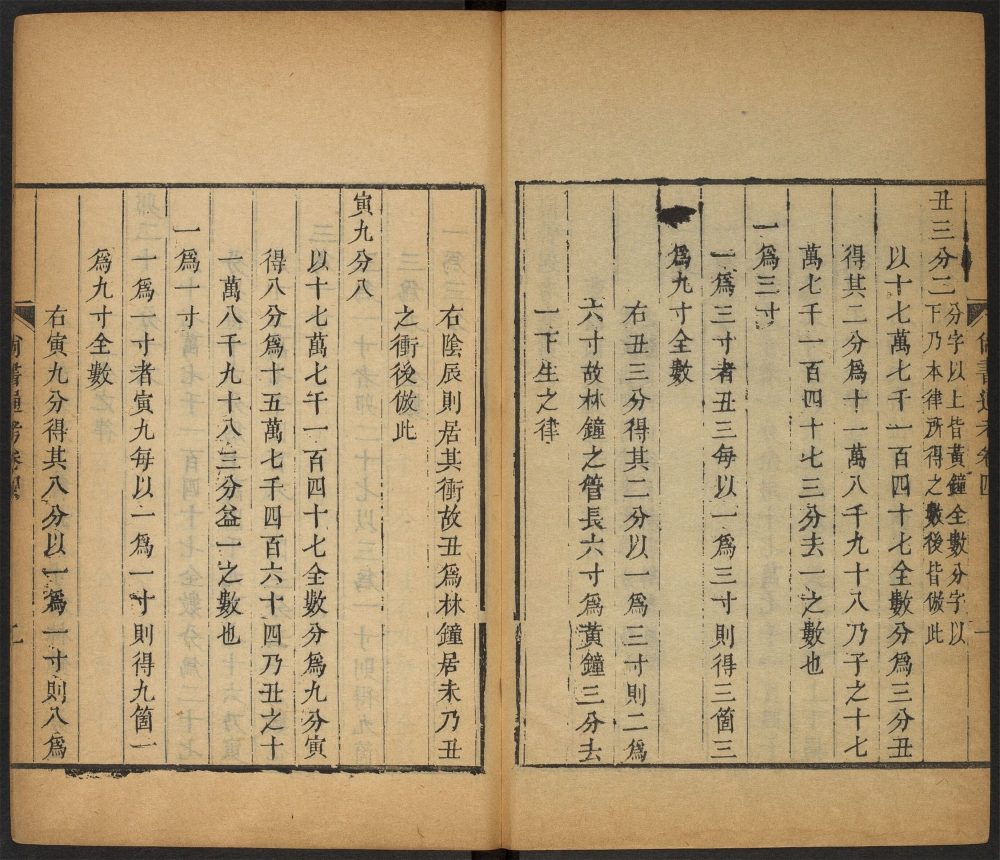 尚書通考卷四
一
丑三分二
分字以上皆黃鐘全數分字以
下乃本律所得之數後皆倣此
以十七萬七千一百四十七全數分爲三分丑
得其二分爲十一萬八千九十八乃子之十七
萬七千一百四十七三分去一之數也
一爲三寸
一爲三寸者丑三每以一爲三寸則得三箇三
爲九寸全數
右丑三分得其二分以一爲三寸則二爲
六寸故林鐘之管長六寸爲黃鐘三分去
一下生之律
右陰辰則居其衝故丑爲林鐘居未乃丑
之衝後倣此
寅九分八
以十七萬七千一百四十七全數分爲九分寅
得八分爲十五萬七千四百六十四乃丑之十
一萬八千九十八三分益一之數也
一爲一寸
一爲一寸者寅九每以一爲一寸則得九箇一
爲九寸全數
右寅九分得其八分以一爲一寸則八爲
尚書通考卷四
二